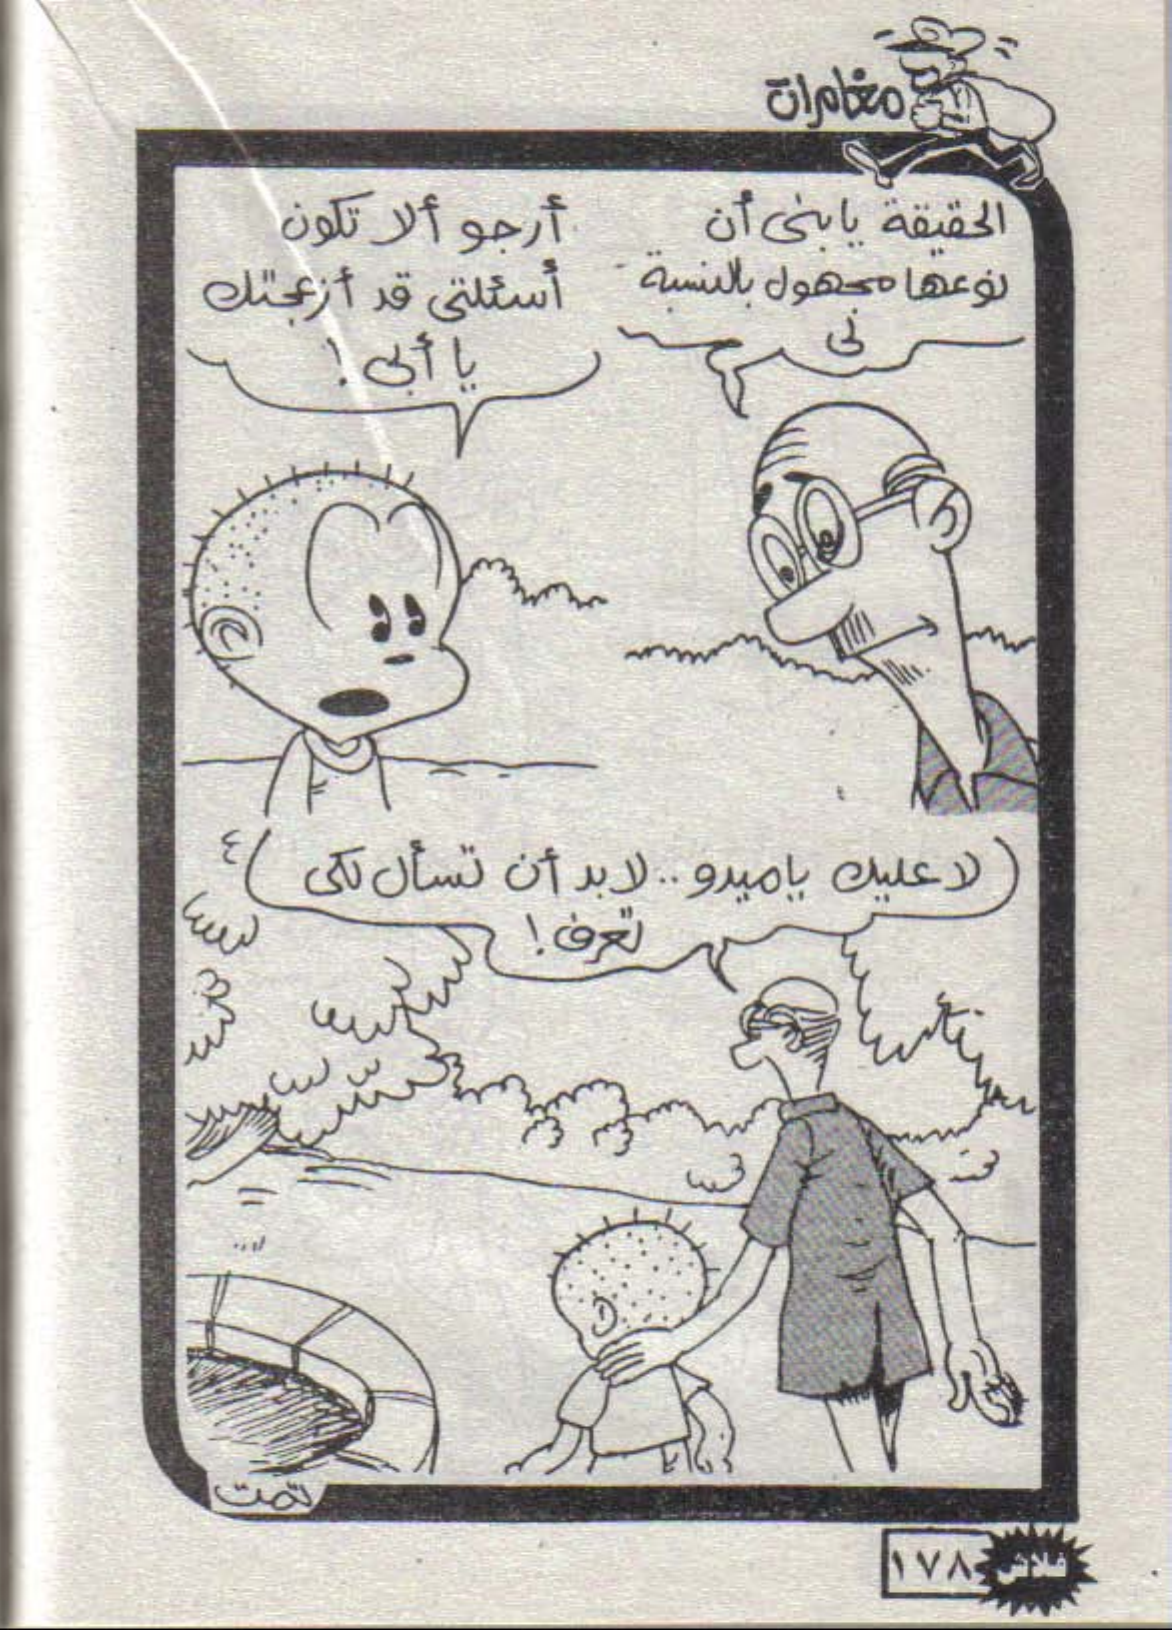 مغامرات
الحقيقة يا بنى أن
نوعها مجهول بالنسبة
لى
أرجو ألا تكون
أسئلتى قد أزعجتك
يا أبى !
لا عليك يا ميدو .. لابد أن تسأل لكى
تعرف !
٤
تمت
١٧٨
فلاش